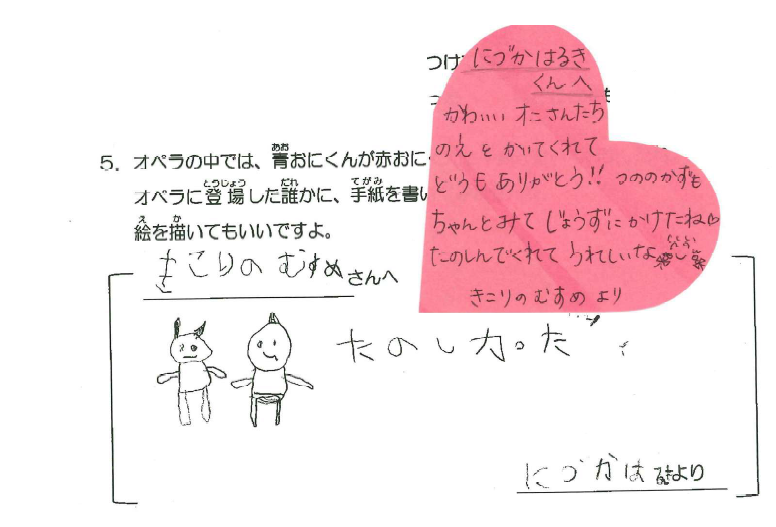 つけ
にづかはるき
くんへ
かわいい オニさんたち
のえ を かいてくれて
どうも ありがとう!! つののかずも
ちゃんとみて じょうずに かけたね♡
たのしんでくれて うれしいな
きこりの むすめ より
5. オペラの中では、青おにくんが赤おにく
オペラに登場した誰かに、手紙を書い
絵を描いてもいいですよ。
きこりの むすめ さんへ
たのしかった
にづかはるきより